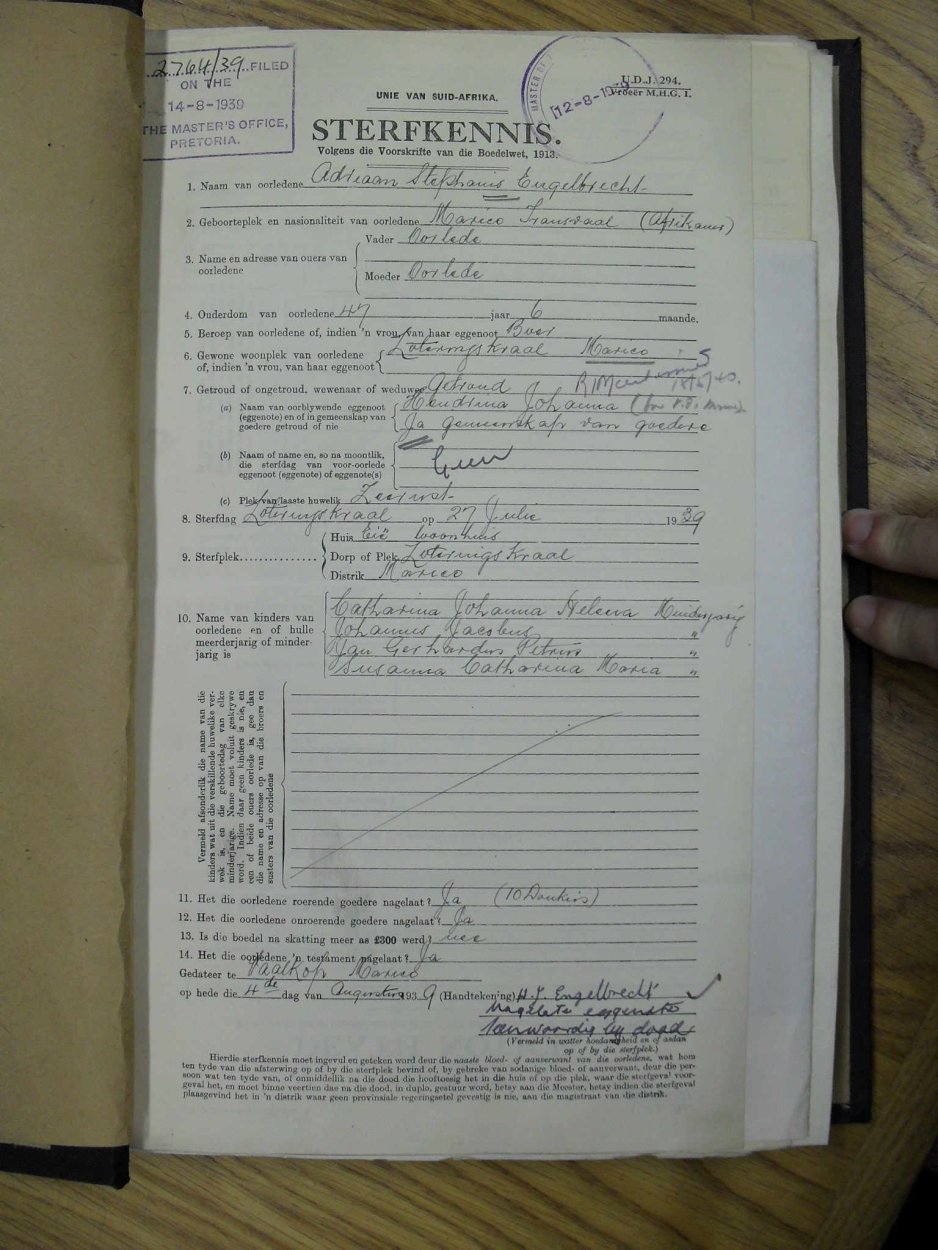 2764/39 FILED
ON THE
14-8-1939
THE MASTER'S OFFICE,
PRETORIA.
MASTER OF
12-8-19
U.D.J. 294.
Vroeër M.H.G. 1.
UNIE VAN SUID-AFRIKA.
STERFKENNIS.
Volgens die Voorskrifte van die Boedelwet, 1913.
1. Naam van oorledene Adriaan Stephanus Engelbrecht
2. Geboorteplek en nasionaliteit van oorledene Marico Transvaal (Afrikaner)
3. Name en adresse van ouers van oorledene
Vader Oorlede
Moeder Oorlede
4. Ouderdom van oorledene 47 jaar 6 maande.
5. Beroep van oorledene of, indien 'n vrou, van haar eggenoot Boer
6. Gewone woonplek van oorledene of, indien 'n vrou, van haar eggenoot Loteringskraal Marico
7. Getroud of ongetroud, wewenaar of weduwee Getroud
(a) Naam van oorblywende eggenoot (eggenote) en of in gemeenskap van goedere getroud of nie
Hendrina Johanna
Ja gemeenskap van goedere
(b) Naam of name en, so na moontlik, die sterfdag van voor-oorlede eggenoot (eggenote) of eggenote(s) Geen
(c) Plek van laaste huwelik Zeerust
8. Sterfdag Loteringskraal op 27 Julie 1939
9. Sterfplek
Huis Eie woonhuis
Dorp of Plek Loteringskraal
Distrik Marico
10. Name van kinders van oorledene en of hulle meerderjarig of minderjarig is
Catharina Johanna Helena Minderjarig
Johannes Jacobus "
Jan Gerhardus Petrus "
Susanna Catharina Maria "
Vermeld afsonderlik die name van die
kinders wat uit die verskillende huwelike ver-
wek is, en die geboortedag van elke
minderjarige. Name moet voluit geskrywe
word. Indien daar geen kinders is nie, en
een of beide ouers oorlede is, gee dan
die name en adresse op van die broers en
susters van die oorledene
11. Het die oorledene roerende goedere nagelaat? Ja (10 Donkies)
12. Het die oorledene onroerende goedere nagelaat? Ja
13. Is die boedel na skatting meer as £300 werd? nee
14. Het die oorledene 'n testament nagelaat? Ja
Gedateer te Vaalkop Marico
op hede die 4de dag van Augustus 1939 (Handtekening) H.J. Engelbrecht
Nagelate eggenote
Teenwoordig by dood
(Vermeld in watter hoedanigheid en of asdan
op of by die sterfplek.)
Hierdie sterfkennis moet ingevul en geteken word deur die naaste bloed- of aanverwant van die oorledene, wat hom
ten tyde van die afsterwing op of by die sterfplek bevind of, by gebreke van sodanige bloed- of aanverwant, deur die per-
soon wat ten tyde van, of onmiddellik na die dood die hooftoesig het in die huis of op die plek, waar die sterfgeval voor-
geval het, en moet binne veertien dae na die dood, in duplo, gestuur word, hetsy aan die Meester, hetsy indien die sterfgeval
plaasgevind het in 'n distrik waar geen provinsiale regeringsetel gevestig is nie, aan die magistraat van die distrik.